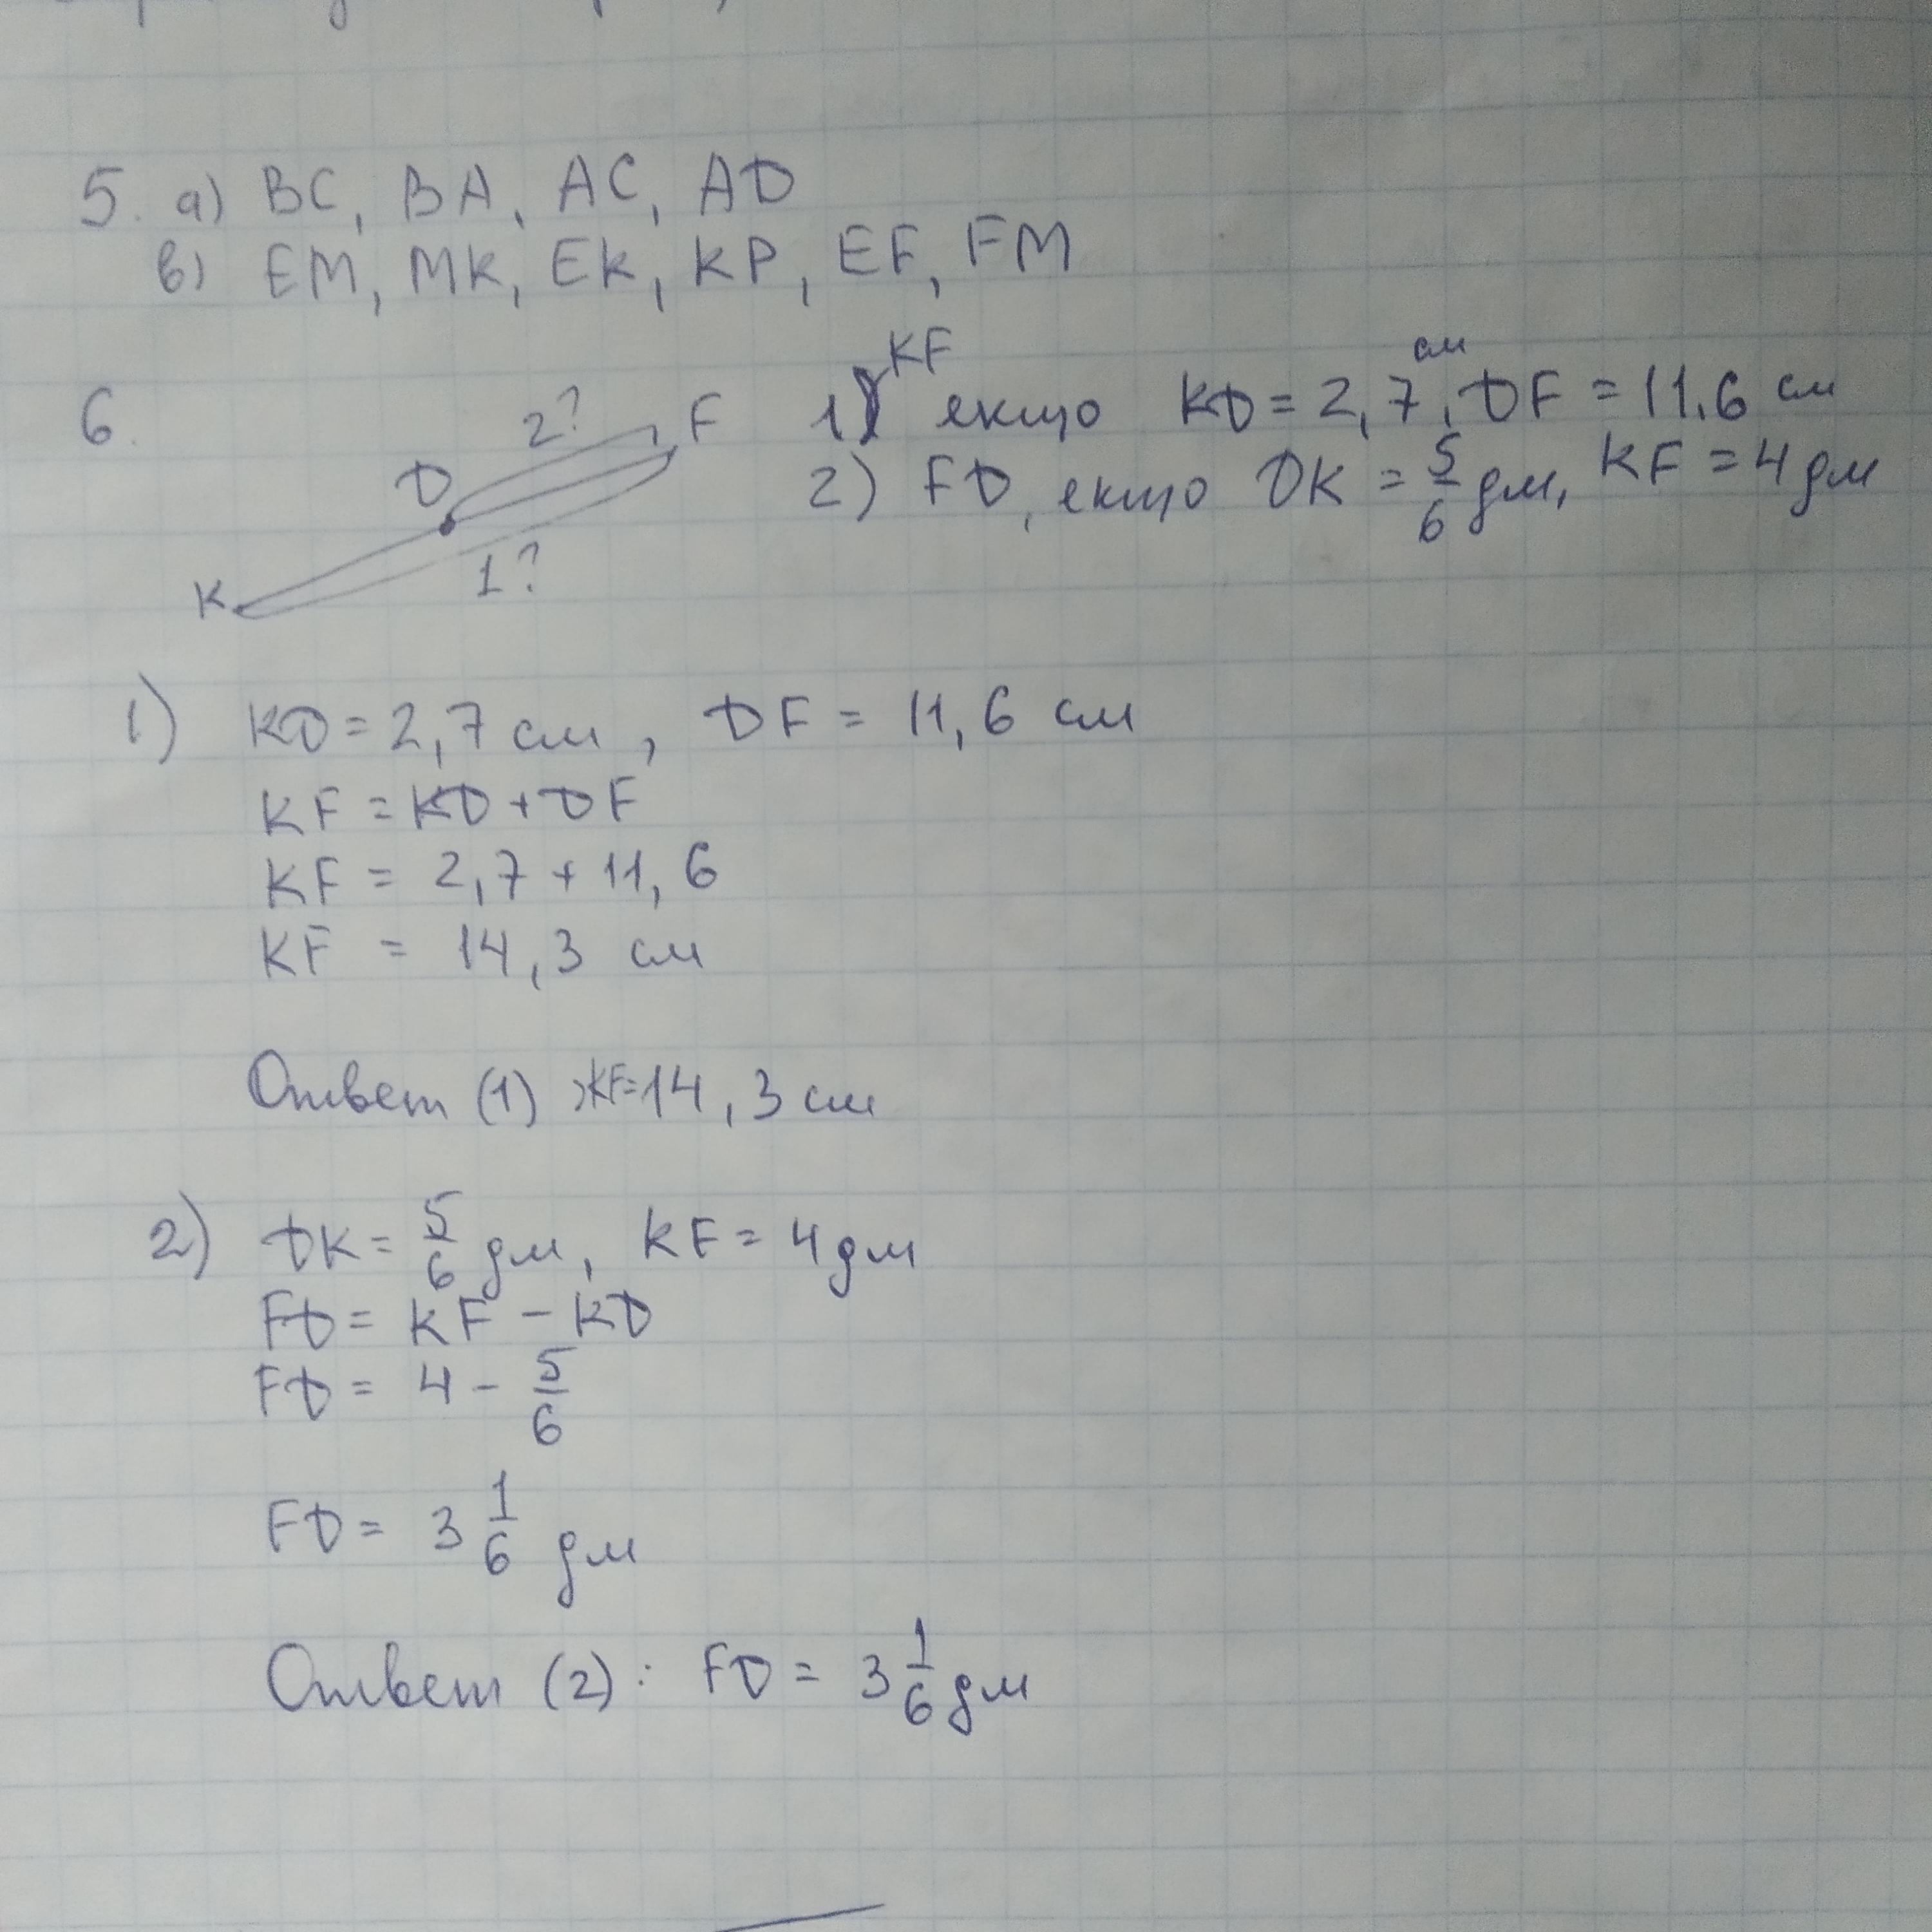 5. а) BC, BA, AC, AD
в) EM, MK, EK, KP, EF, FM
6.
2?
F
D
K
1?
KF
1) якщо KD = 2,7 см, DF = 11,6 см
2) FD, якщо DK = 5/6 дм, KF = 4 дм
1) KD = 2,7 см, DF = 11,6 см
KF = KD + DF
KF = 2,7 + 11,6
KF = 14,3 см
Ответ (1) KF = 14,3 см
2) DK = 5/6 дм, KF = 4 дм
FD = KF - KD
FD = 4 - 5/6
FD = 3 1/6 дм
Ответ (2): FD = 3 1/6 дм